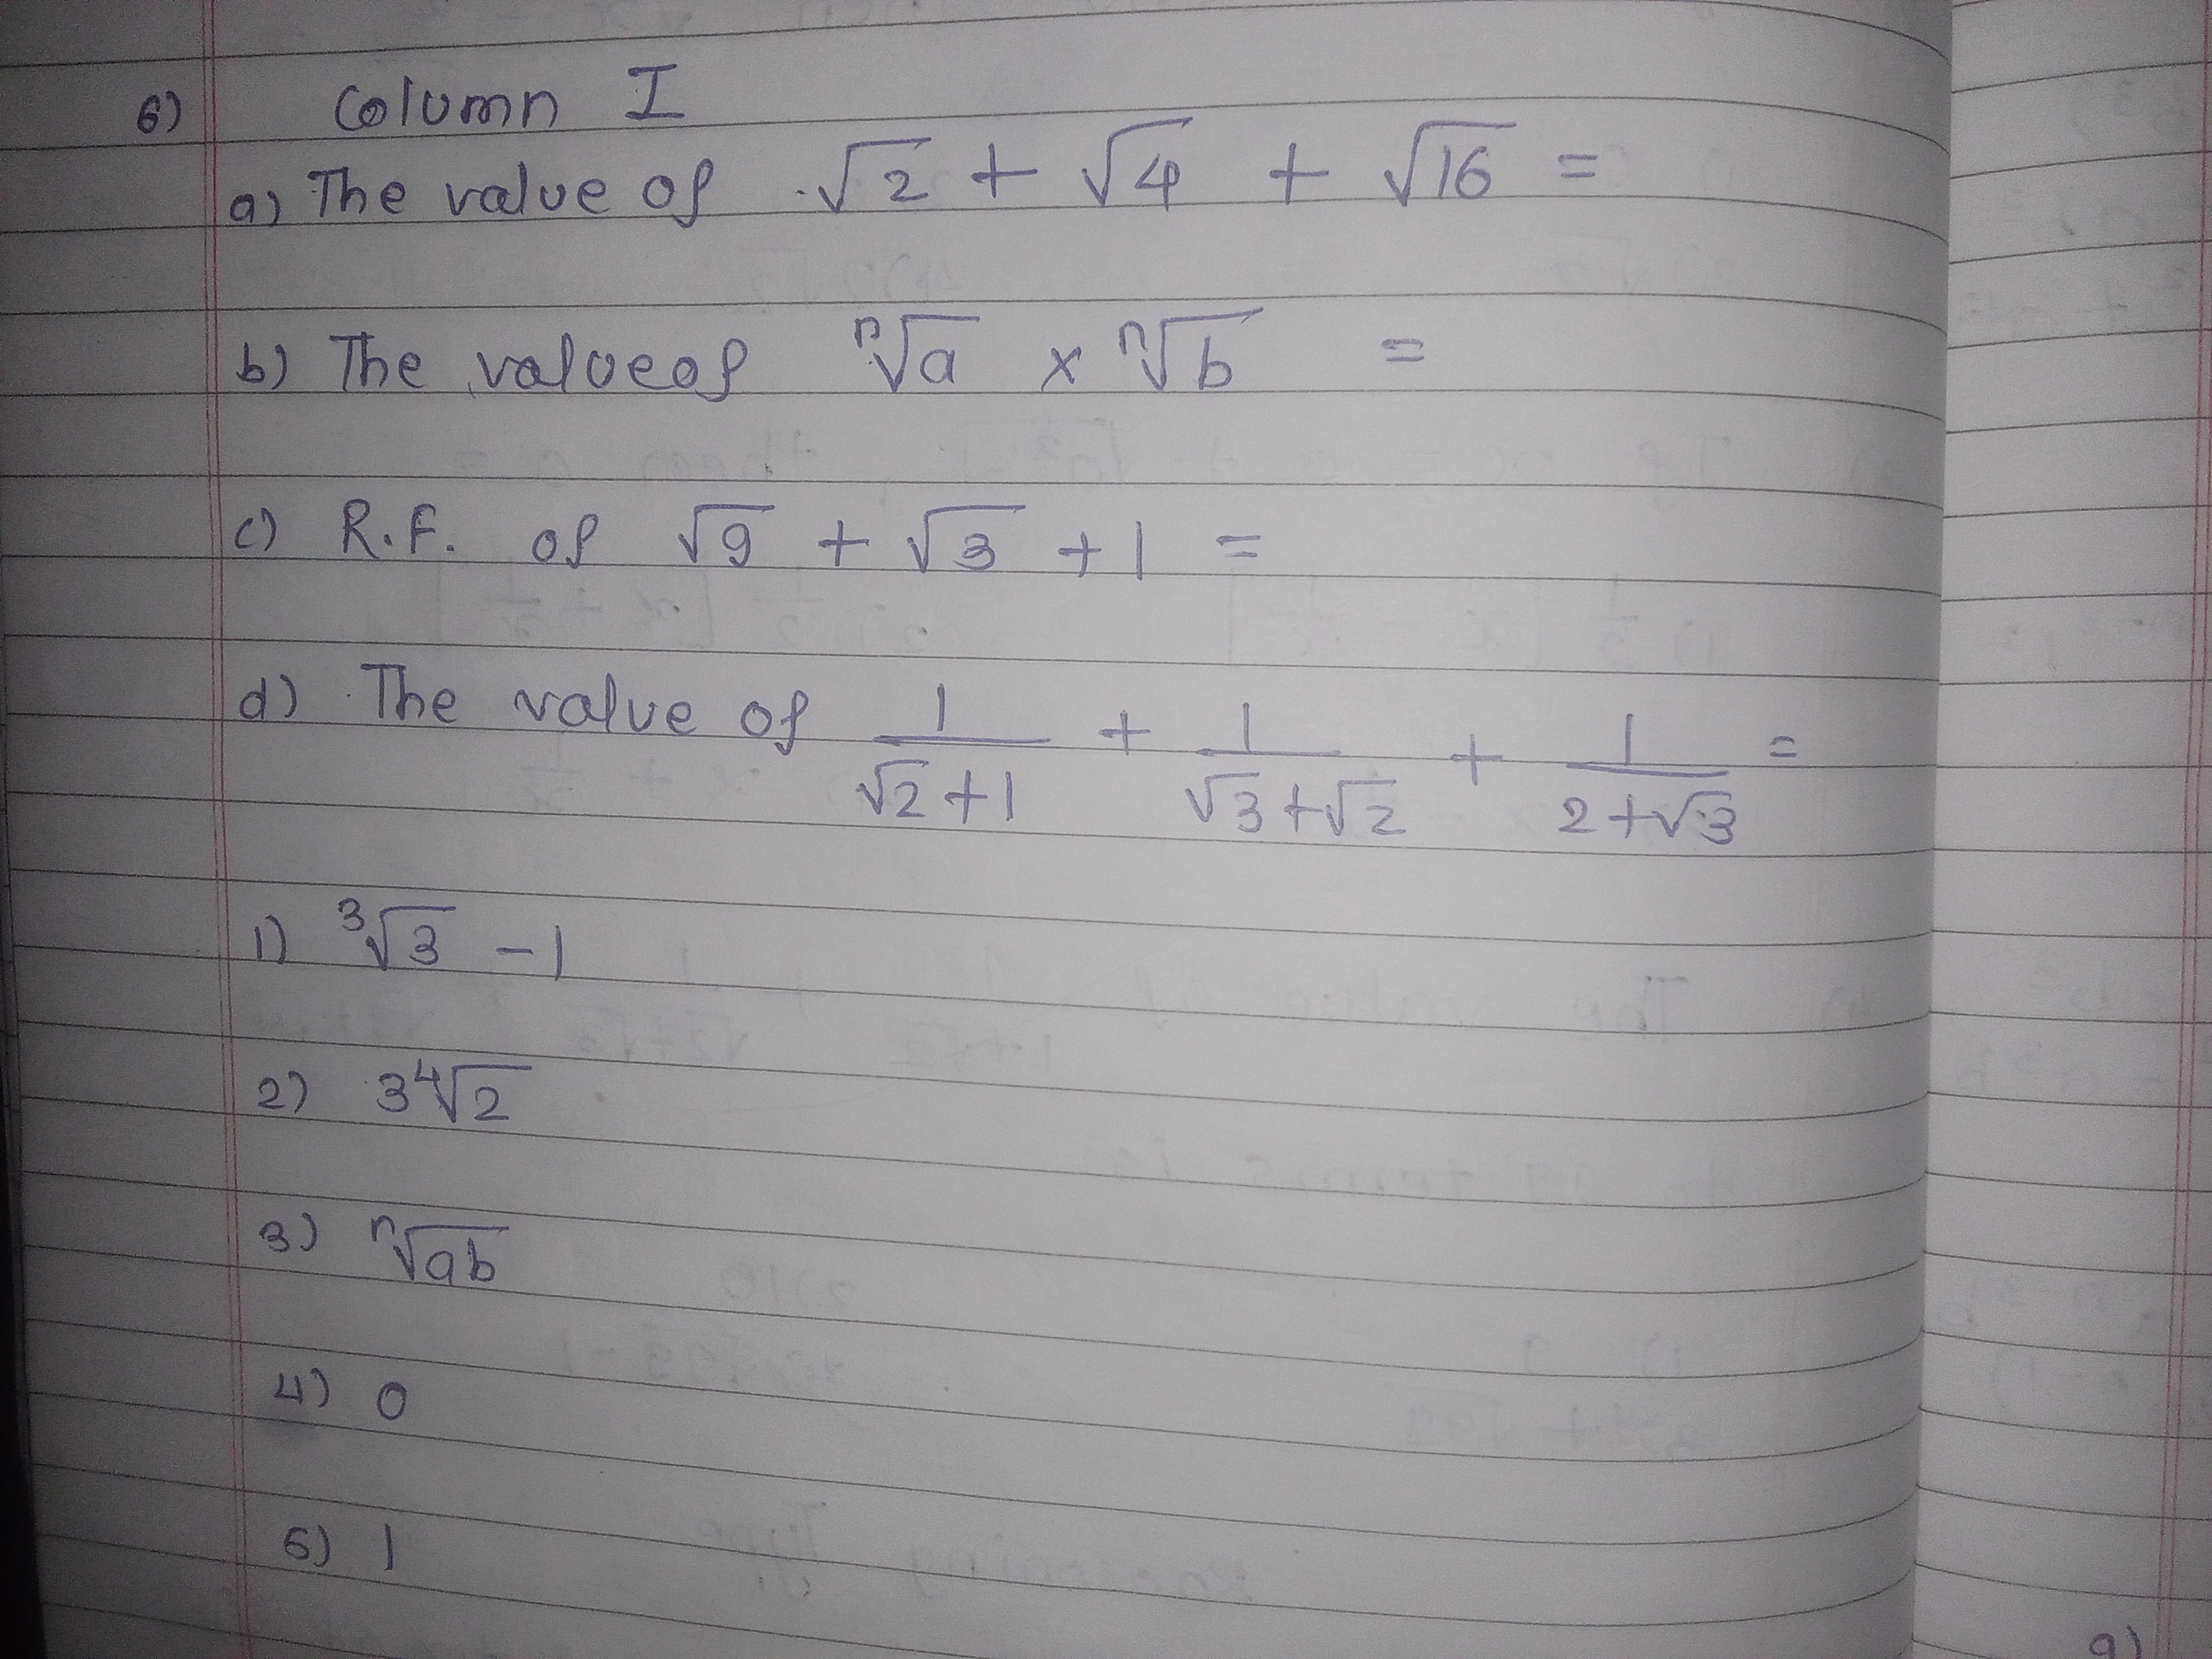 6) Column I
a) The value of √2 + √4 + √16 =
b) The value of ⁿ√a × ⁿ√b =
c) R.F. of √9 + √3 + 1 =
d) The value of 1/(√2+1) + 1/(√3+√2) + 1/(2+√3) =
1) ³√3 - 1
2) 3⁴√2
3) ⁿ√ab
4) 0
5) 1
9)